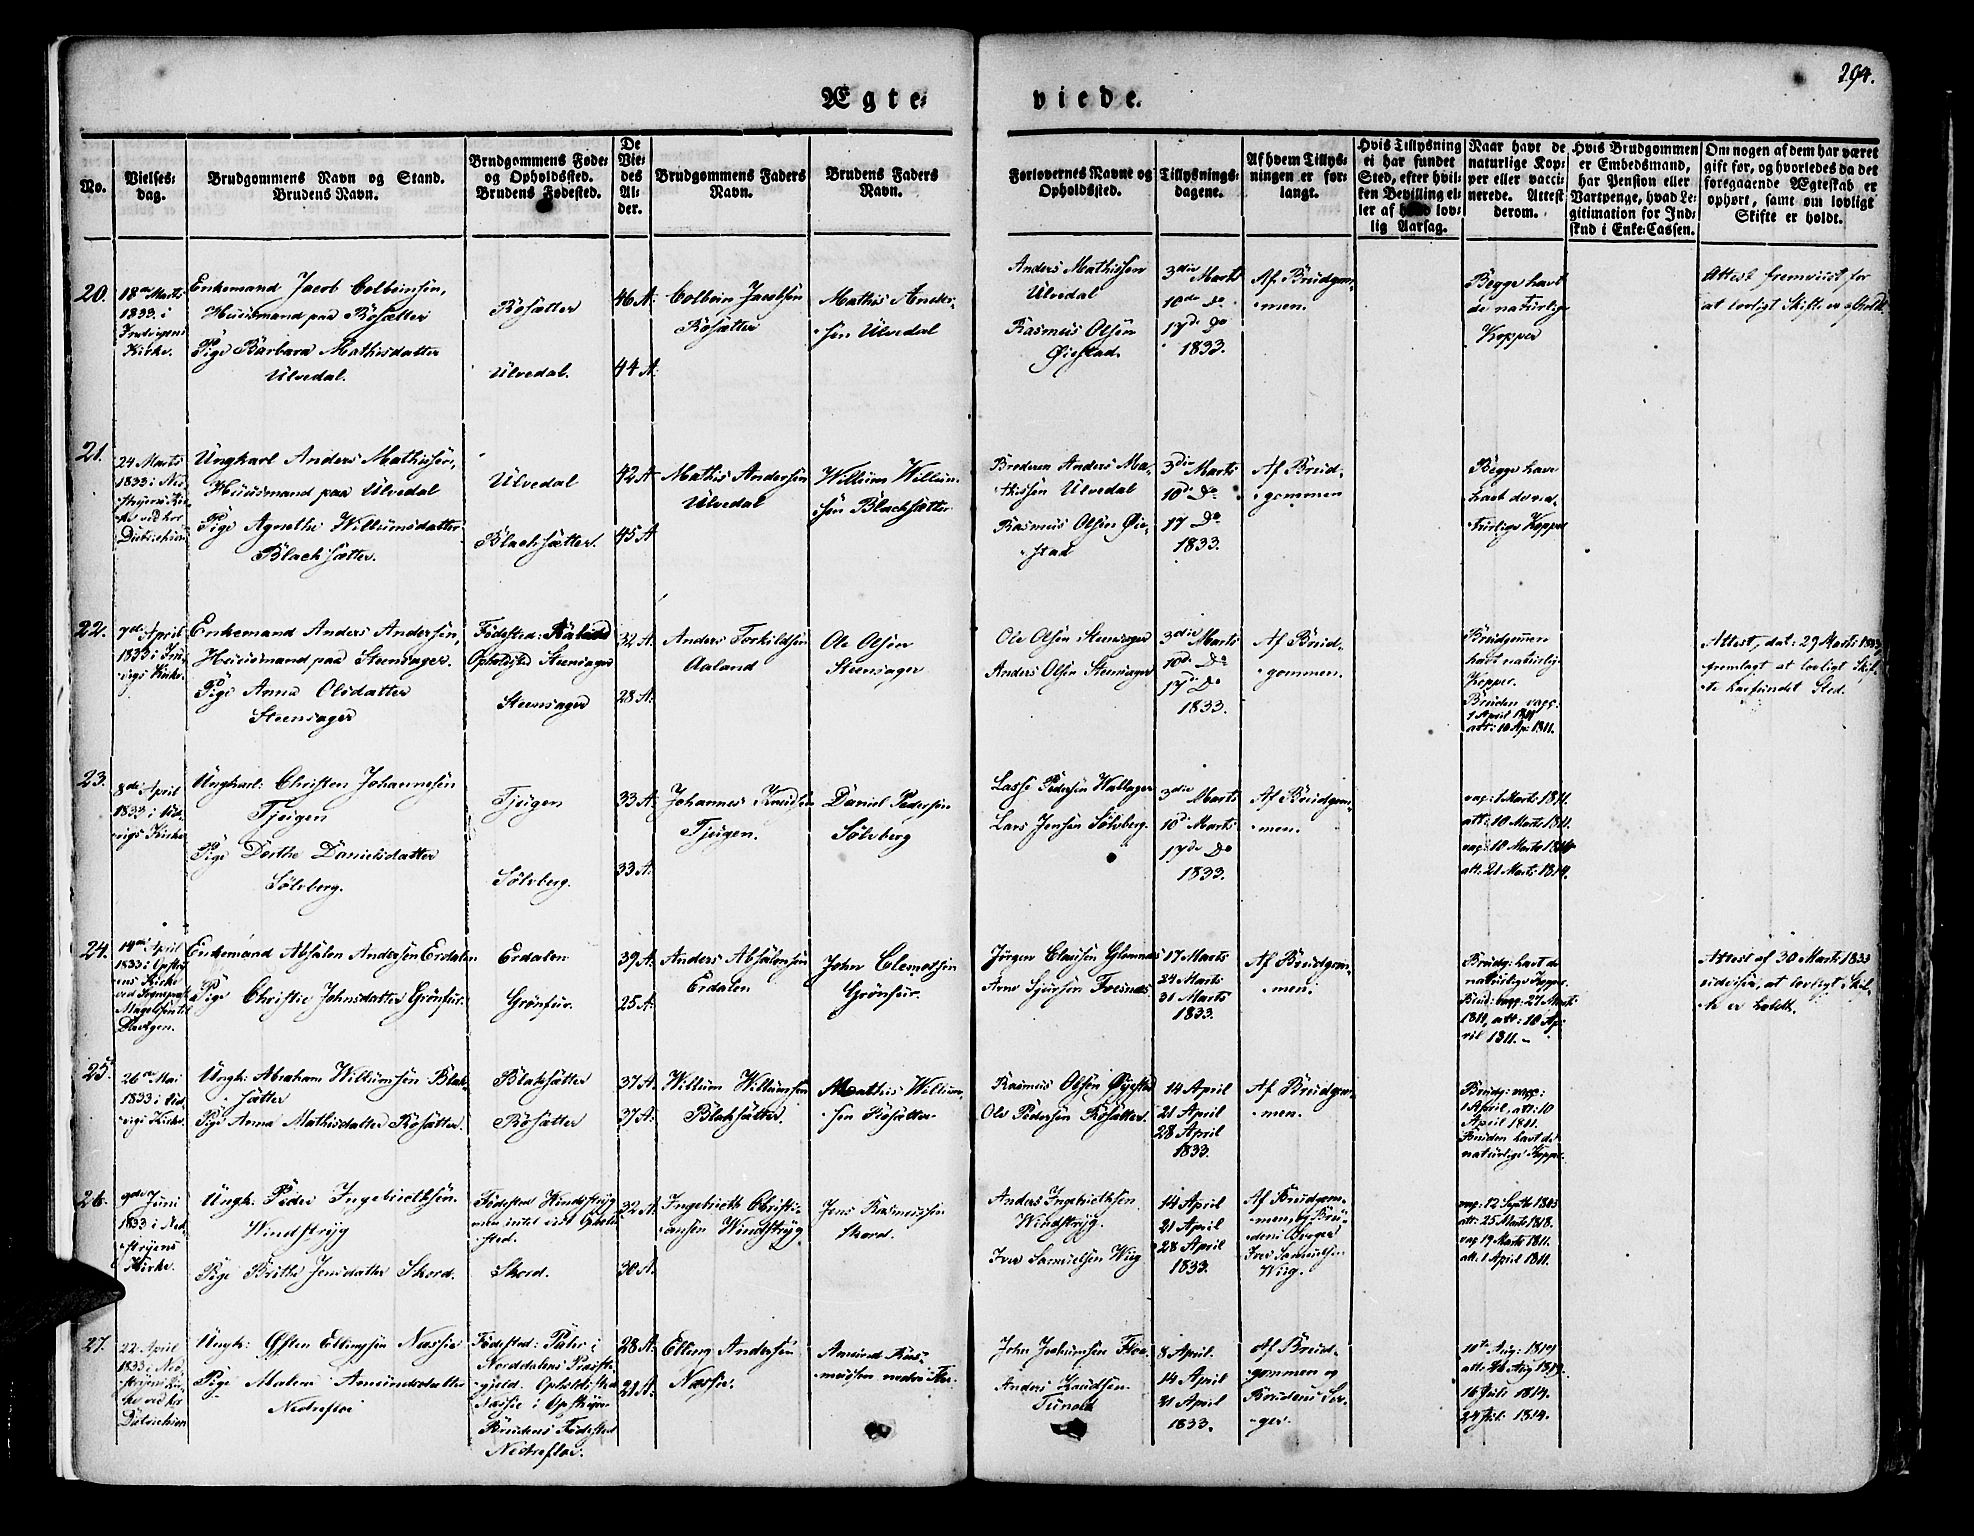 294.
Ægte-
viede.
No.
Vielses-
dag.
Brudgommens Navn og Stand.
Brudens Navn.
Brudgommens Føde-
og Opholdssted.
Brudens Fødested.
De
Vie-
des
Al-
der.
Brudgommens Faders
Navn.
Brudens Faders
Navn.
Forlovernes Navne og
Opholdssted.
Tillysnings-
dagene.
Af hvem Tillys-
ningen er for-
langt.
Hvis Tillysning
ei har fundet
Sted, efter hvil-
ken Bevilling el-
ler af hvad lov-
lig Aarsag.
Naar havt de
naturlige Kop-
per eller vacci-
nerede. Attest
derom.
Hvis Brudgommen
er Embedsmand,
har Pension eller
Vartpenge, hvad Le-
gitimation for Ind-
skud i Enke-Cassen.
Om nogen af dem har været
gift før, og hvorledes da det
foregaaende Ægteskab er
ophørt, samt om lovligt
Skifte er holdt.
20.
18de Marts
1833. i
Indvigens
Kirke.
Enkemand Jacob Colbeinsen,
Huusmand paa Rösætter
Pige Barbara Mathisdatter
Ulvedal.
Rösætter
Ulvedal.
46 A.
44 A.
Colbein Jacobsen
Rösætter
Mathis Ander-
sen Ulvedal
Anders Mathissen
Ulvedal
Rasmus Olsen
Øiestad.
3die Marts
10de Do
17de Do
1833.
Af Brudgom-
men.
Begge havt
de naturlige
Kopper
Attest fremviist for
at lovligt Skifte er afholdt
21.
24 Marts
1833 i Ned-
strijens Kir-
ke ved hr
Ungkarl Anders Mathissen,
Huusmand paa Ulvedal
Pige Agnethe Willumsdatter
Blachsætter.
Ulvedal
Blachsætter.
42 A
45 A
Mathis Andersen
Ulvedal
Willum Willum-
sen Blachsætter
Broderen Anders Ma-
thissen Ulvedal
Rasmus Olsen Øie-
stad
3die Marts
10de Do
17 Do
1833.
Af Brud-
gommen
Begge have
havt de na-
turlige Kopper
22.
7de April
1833 i Ind-
vigs Kirke.
Enkemand Anders Andersen,
Huusmand paa Steensager.
Pige Anna Olsdatter
Steensager
Fødested:
Opholdsted Steensager
Steensager
32 A.
28 A.
Anders Torkildsen
Aaland
Ole Olsen
Steensager
Ole Olsen Steensager
Anders Olsen Steensager
3die Marts
10de Do
17de Do
1833.
Af Brud-
gommen.
Brudgommen
havt naturlige
Kopper.
Bruden vacc:
1 April 1811
att: 10 Ap: 1811.
Attest, dat: 29 Marts 1833
fremlagt at lovligt Skif-
te har fundet Sted.
23.
8de April
1833 i Ind-
vigs Kirke
Ungkarl: Christen Johannesen
Tjugen
Pige Dorthe Danielsdatter
Sölvberg.
Tjugen
Sölvberg.
33 A.
33 A.
Johannes Knudsen
Tjugen.
Daniel Pedersen
Sölvberg
Lasse Pedersen Wallager
Lars Jensen Sölvberg.
3die Marts
10de Marts
17de Do
1833.
Af Brudgom-
men.
vac: 1 Marts 1811.
att: 10 Marts 1811.
vac: 10 Marts 1814
att: 21 Marts 1814.
24.
14de April
1833 i Opstry-
ens Kirke
Enkemand Absalon Andersen Erdalen
Pige Christie Johnsdatter Grönfur.
Erdalen
Grönfur.
39 A.
25 A.
Anders Absalonsen
Erdalen
John Clemetsen
Grönfur.
Jörgen Clausen Glomnes
Arne Sjursen Tvesnes
17 Marts
24 Marts
31 Marts
1833.
Af Brudgom-
men.
Brudg: havt de
naturlige Kopper.
Brud: vacc: 27 Marts
1811, att: 10 Ap-
ril 1811.
Attest af 30 Marts 1833
udviser, at lovligt Skif-
te er holdt.
25.
26de Mai
1833 i Ind-
vigs Kirke.
Ungk: Abraham Willumsen Blak-
sætter
Pige Anna Mathisdatter Rösætter.
Blaksætter
Rösætter
37 A.
37 A.
Willum Willumsen
Blaksætter.
Mathis Willum-
sen Rösætter.
Rasmus Olsen Øyestad
Ole Pedersen Rösætter.
14 April
21 April
28 April
1833.
Af Brudgom-
men.
Brudg: vacc:
1 April, att: 10
April 1811.
Bruden havt de
naturlige Kopper.
26.
9de Juni
1833 i Ned-
stryens
Kirke.
Ungk: Peder Ingebrethsen
Windstryg
Pige Brithe Jensdatter Skord.
Fødested Windstryg
Skord.
22 A.
30 A.
Ingebreth Christi-
ansen Windstryg.
Jens Rasmussen
Skord.
Anders Ingebrethsen
Windstryg.
Iver Samuelsen Wiig
14 April
21 April
28 April
1833.
Af Brudgom-
men og Bru-
dens Sverger
Iver Samuelsen
Wiig.
vac: 12 Septb 1803
att: 25 Marts 1818.
vac 19 Marts 1811.
att. 1 April 1811.
27.
22 April
1833 i Ned-
stryens Kir-
ke ved hr
Ungk: Östen Ellingsen Næssie
Pige Malene Amundsdatter
Nedrefloe
Fødested: Pahr i
Norddalens Præste-
gjeld. Opholdssted
Næssie i Opstryen
Brudens Födested
Nedrefloe.
28 A.
21 A.
Elling Andersen
Næssie.
Amund Ras-
mussen nedre Floe.
John Johnsen Floe.
Anders Knudsen
Tunold
8 April.
14 April
21 April
1833.
Af Brud-
gommen og
Brudens Sver-
ger.
10de Aug: 1819
att: 26 Aug 1819.
16 Juli 1814.
24 Jul: 1814.